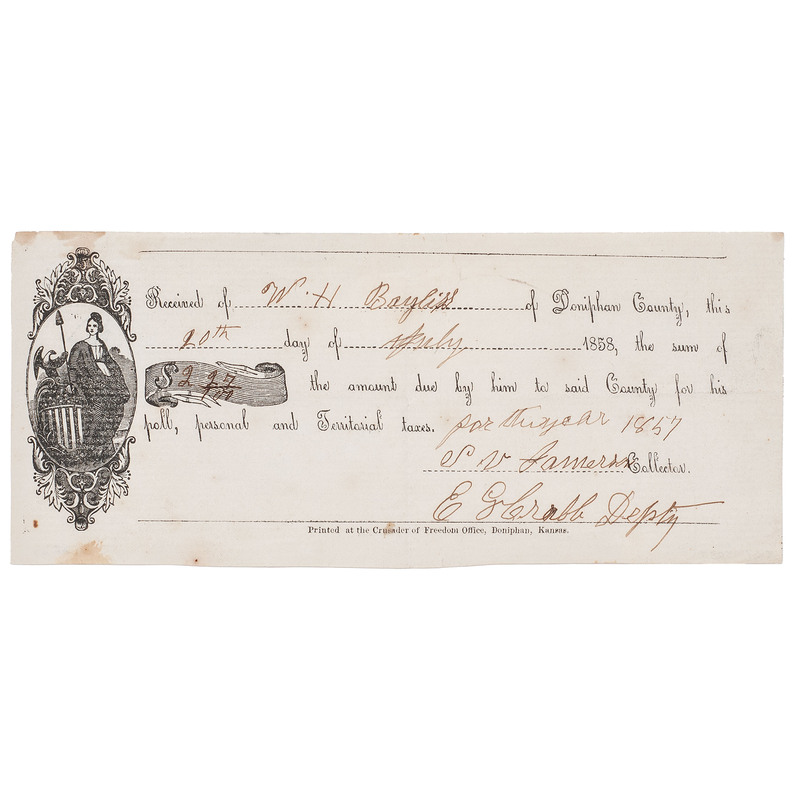 Received of W. H Bayliss of Doniphan County, this
20th day of July 1858, the sum of
$ 2 27/100 the amount due by him to said County for his
poll, personal and Territorial taxes. for the year 1857
S V Jameson Collector.
E G Crabb Depty
Printed at the Crusader of Freedom Office, Doniphan, Kansas.